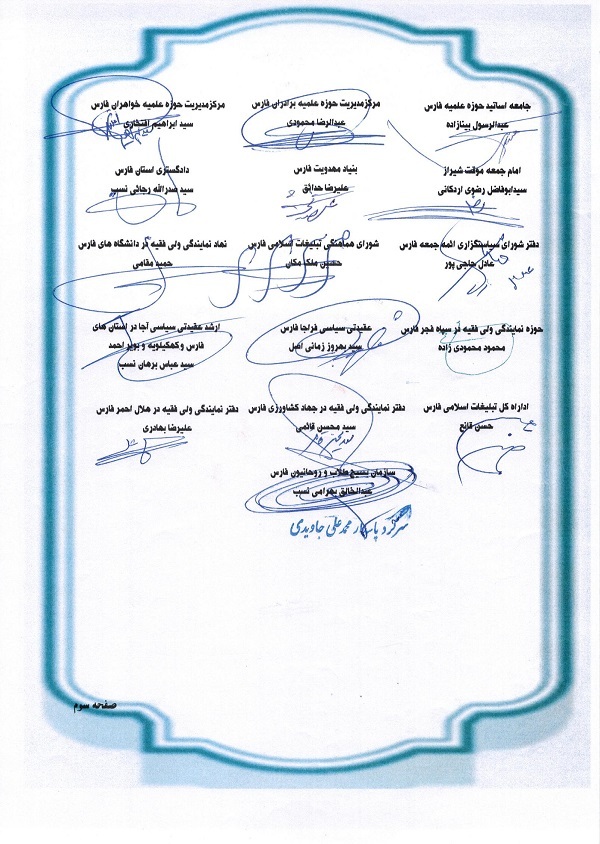 جامعه اساتید حوزه علمیه فارس
عبدالرسول بینازاده
مرکزمدیریت حوزه علمیه برادران فارس
عبدالرضا محمودی
مرکزمدیریت حوزه علمیه خواهران فارس
سید ابراهیم افتخاری
امام جمعه موقت شیراز
سیدابوفاضل رضوی اردکانی
بنیاد مهدویت فارس
علیرضا حدائق
دادگستری استان فارس
سید صدرالله رجائی نسب
دفتر شورای سیاستگزاری ائمه جمعه فارس
عادل حاجی پور
شورای هماهنگی تبلیغات اسلامی فارس
حسین ملک مکان
نهاد نمایندگی ولی فقیه در دانشگاه های فارس
حمید مقامی
حوزه نمایندگی ولی فقیه در سپاه فجر فارس
محمود محمودی زاده
عقیدتی سیاسی فراجا فارس
سید بهروز زمانی اصل
ارشد عقیدتی سیاسی آجا در استان های
فارس و کهکیلویه و بویر احمد
سید عباس برهان نسب
اداراه کل تبلیغات اسلامی فارس
حسن قانع
دفتر نمایندگی ولی فقیه در جهاد کشاورزی فارس
سید محسن قائمی
دفتر نمایندگی ولی فقیه در هلال احمر فارس
علیرضا بهادری
سازمان بسیج طلاب و روحانیون فارس
عبدالخالق بهرامی نسب
سرگرد پاسدار محمدعلی جاویدی
صفحه سوم